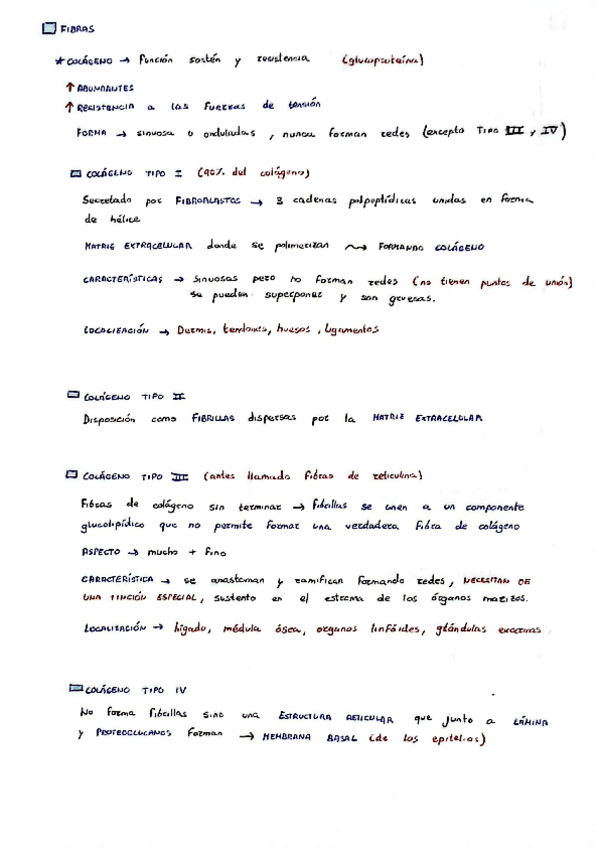 FIBRAS
* COLÁGENO → Función sostén y resistencia (glucoproteína)
↑ ABUNDANTES
↑ RESISTENCIA a las fuerzas de tensión
FORMA → sinuosa u onduladas, nunca forman redes (excepto TIPO III y IV)
COLÁGENO TIPO I (90% del colágeno)
Secretado por FIBROBLASTOS → 3 cadenas polipeptídicas unidas en forma
de hélice
MATRIZ EXTRACELULAR donde se polimerizan → FORMANDO COLÁGENO
CARACTERÍSTICAS → sinuosas pero no forman redes (no tienen puntos de unión)
se pueden superponer y son gruesas.
LOCALIZACIÓN → Dermis, tendones, huesos, ligamentos
COLÁGENO TIPO II
Disposición como FIBRILLAS dispersas por la MATRIZ EXTRACELULAR
COLÁGENO TIPO III (antes llamado fibras de reticulina)
Fibras de colágeno sin terminar → fibrillas se unen a un componente
glucolipídico que no permite formar una verdadera fibra de colágeno
ASPECTO → mucho + fino
CARACTERÍSTICA → se anastoman y ramifican formando redes, NECESITAN DE
UNA TINCIÓN ESPECIAL, sustento en el estroma de los órganos macizos.
LOCALIZACIÓN → hígado, médula ósea, organos linfóides, glándulas exocrinas
COLÁGENO TIPO IV
No forma fibrillas sino una ESTRUCTURA RETICULAR que junto a LÁMINA
y PROTEOGLUCANOS forman → MEMBRANA BASAL (de los epitelios)